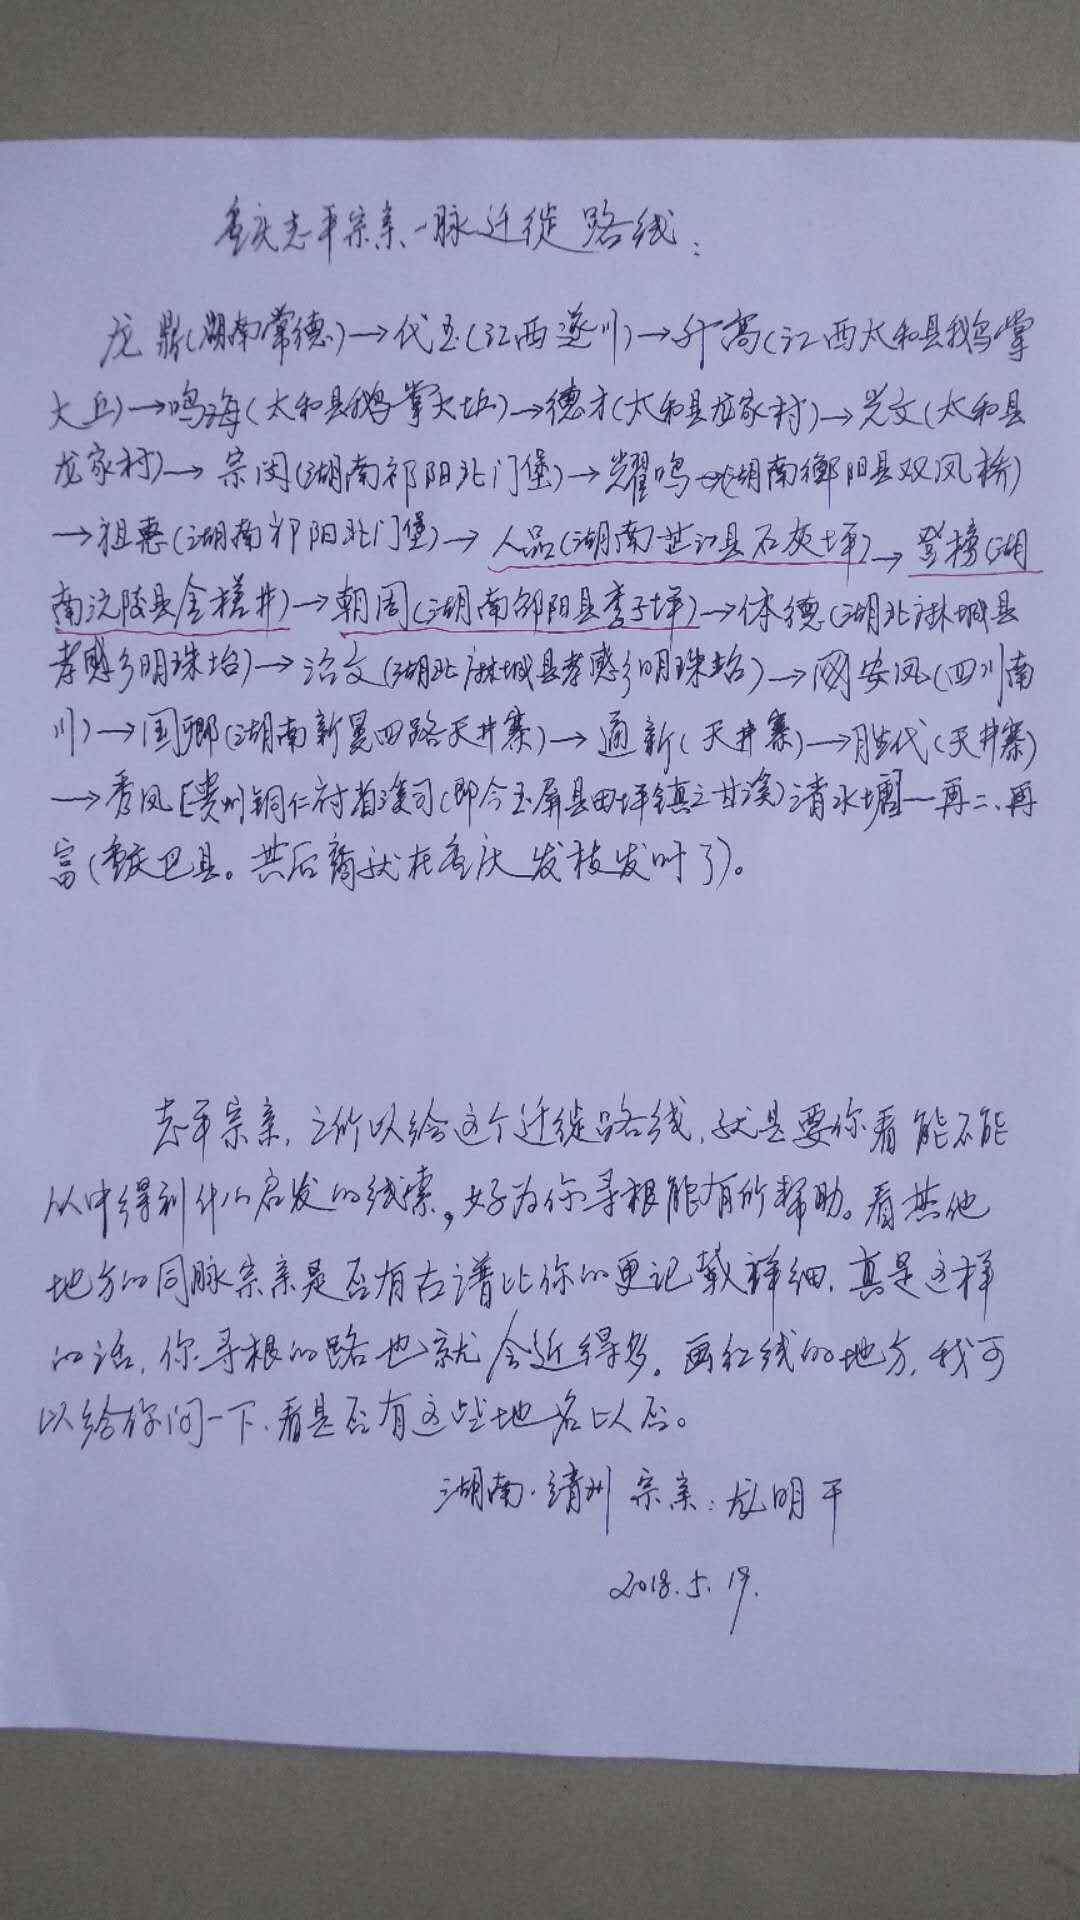 重庆志平宗亲一脉迁徙路线:
龙鼎(湖南常德)→代玉(江西遂川)→升高(江西太和县鹅掌
大丘)→鸣海(太和县鹅掌大坵)→德才(太和县龙家村)→兴文(太和县
龙家村)→宗闵(湖南祁阳北门堡)→耀鸣→(湖南衡阳县双凤桥)
→祖惠(湖南祁阳北门堡)→人品(湖南芷江县石灰坪)→登榜(湖
南沅陵县金槎井)→朝周(湖南邵阳县李子坪)→体德(湖北麻城县
孝感乡明珠垱)→治文(湖北麻城县孝感乡明珠垱)→网安凤(四川南
川)→国卿(湖南新晃四路天井寨)→通新(天井寨)→胜代(天井寨)
→秀凤[贵州铜仁府省溪司(即今玉屏县田坪镇之甘溪)清水塘]—再二、再
富(重庆巴县。其后裔就在重庆发枝发叶了)。
志平宗亲,之所以给这个迁徙路线,就是要你看能不能
从中得到什么启发的线索,好为你寻根能有所帮助。看其他
地方的同脉宗亲是否有古谱比你的更记载祥细,真是这样
的话,你寻根的路也就会近得多。画红线的地方,我可
以给你问一下,看是否有这些地名以否。
湖南·靖州 宗亲:龙明平
2018.5.19.